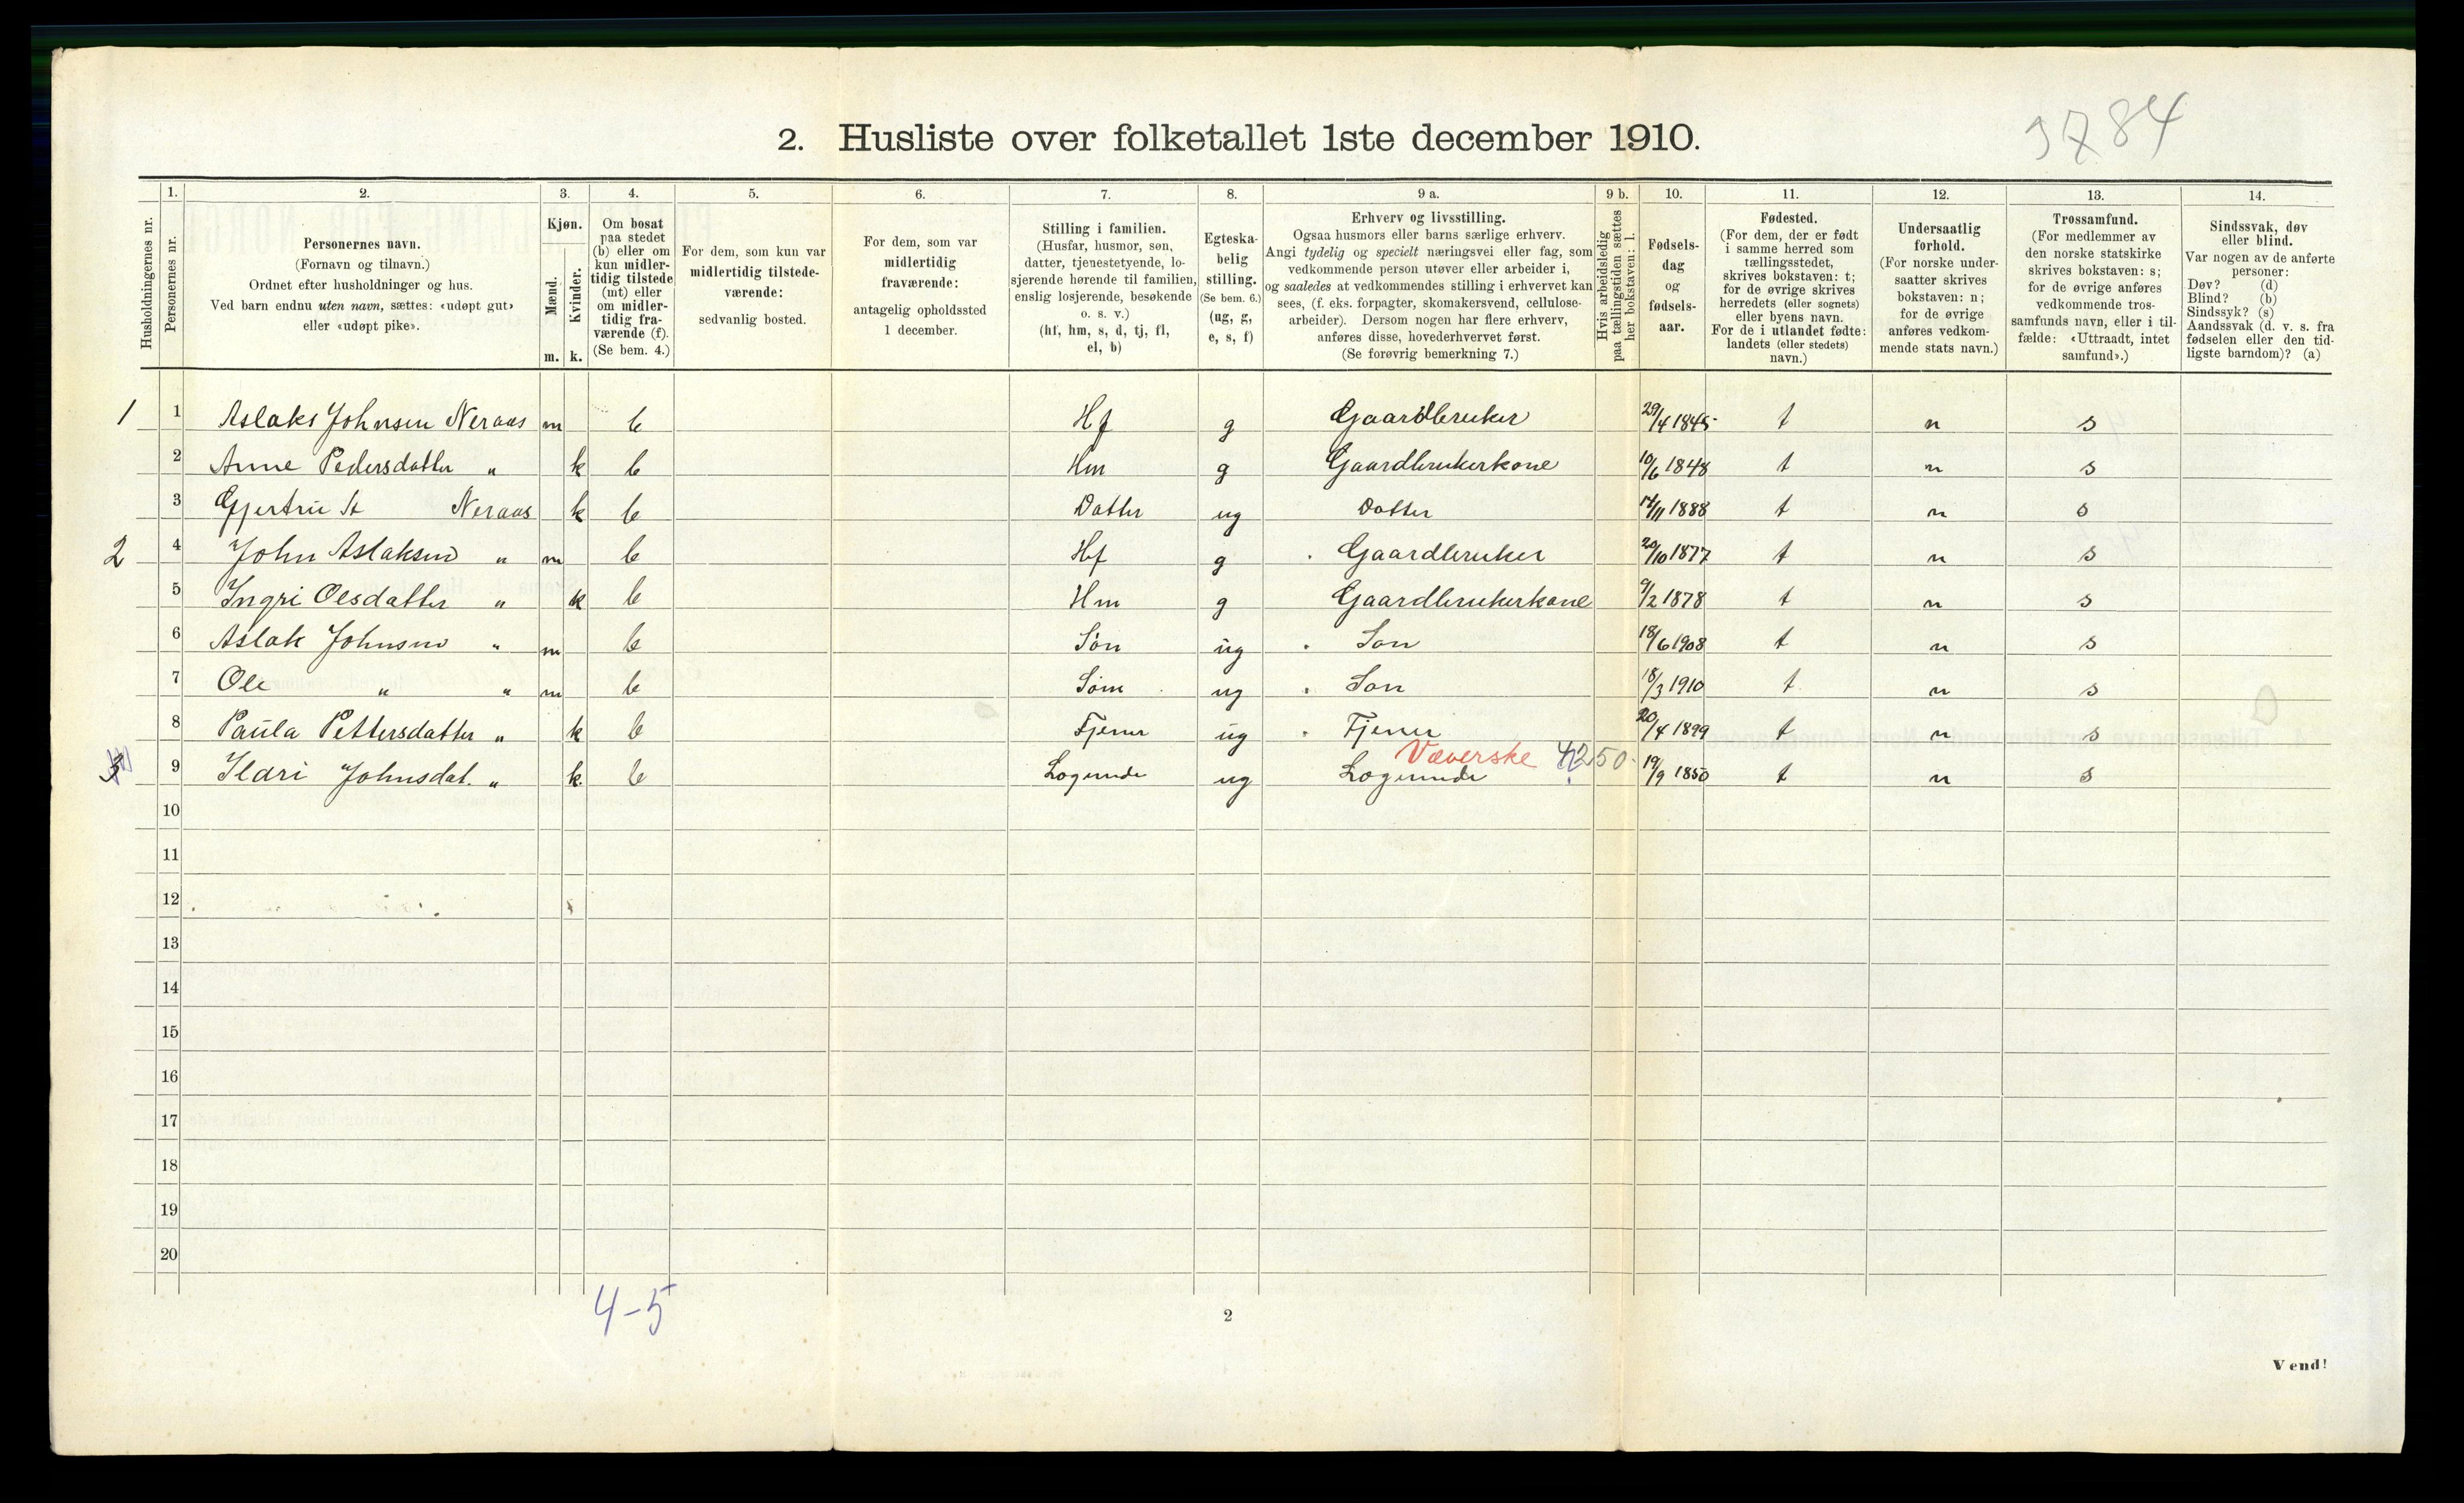 3784
2. Husliste over folketallet 1ste december 1910.
Husholdningernes nr.
1.
Personernes nr.
2.
Personernes navn.
(Fornavn og tilnavn.)
Ordnet efter husholdninger og hus.
Ved barn endnu uten navn, sættes: «udøpt gut»
eller «udøpt pike».
3.
Kjøn.
Mænd.
Kvinder.
m. k.
4.
Om bosat
paa stedet
(b) eller om
kun midler-
tidig tilstede
(mt) eller
om midler-
tidig fra-
værende (f).
(Se bem. 4.)
5.
For dem, som kun var
midlertidig tilstede-
værende:
sedvanlig bosted.
6.
For dem, som var
midlertidig
fraværende:
antagelig opholdssted
1 december.
7.
Stilling i familien.
(Husfar, husmor, søn,
datter, tjenestetyende, lo-
sjerende hørende til familien,
enslig losjerende, besøkende
o. s. v.)
(hf, hm, s, d, tj, fl,
el, b)
8.
Egteska-
belig
stilling.
(Se bem. 6.)
(ug, g,
e, s, f)
9 a.
Erhverv og livsstilling.
Ogsaa husmors eller barns særlige erhverv.
Angi tydelig og specielt næringsvei eller fag, som
vedkommende person utøver eller arbeider i,
og saaledes at vedkommendes stilling i erhvervet kan
sees, (f. eks. forpagter, skomakersvend, cellulose-
arbeider). Dersom nogen har flere erhverv,
anføres disse, hovederhvervet først.
(Se forøvrig bemerkning 7.)
9 b.
Hvis arbeidsledig
paa tællingstiden sættes
her bokstaven: l.
10.
Fødsels-
dag
og
fødsels-
aar.
11.
Fødested.
(For dem, der er født
i samme herred som
tællingsstedet,
skrives bokstaven: t;
for de øvrige skrives
herredets (eller sognets)
eller byens navn.
For de i utlandet fødte:
landets (eller stedets)
navn.)
12.
Undersaatlig
forhold.
(For norske under-
saatter skrives
bokstaven: n;
for de øvrige
anføres vedkom-
mende stats navn.)
13.
Trossamfund.
(For medlemmer av
den norske statskirke
skrives bokstaven: s;
for de øvrige anføres
vedkommende tros-
samfunds navn, eller i til-
fælde: «Uttraadt, intet
samfund».)
14.
Sindssvak, døv
eller blind.
Var nogen av de anførte
personer:
Døv? (d)
Blind? (b)
Sindssyk? (s)
Aandssvak (d. v. s. fra
fødselen eller den tid-
ligste barndom)? (a)
1 1 Aslaks Johnsen Neraas m b Hf g Gaardbruker 29/4 1845 t n s
2 Anne Pedersdatter " k b Hm g Gaardbrukerkone 10/6 1848 t n s
3 Gjertrü A Neraas k b Datter ug Datter 14/11 1888 t n s
2 4 John Aslaksen " m b Hf g Gaardbruker 20/10 1877 t n s
5 Ingri Olsdatter " k b Hm g Gaardbrukerkone 9/2 1878 t n s
6 Aslak Johnsen " m b Søn ug Søn 18/6 1908 t n s
7 Ole " " m b Søn ug Søn 18/3 1910 t n s
8 Paula Pettersdatter " k b Tjener ug Tjener 20/4 1899 t n s
Væverske 4250
3 9 Ildri Johnsdat. " k. b Logerende ug Logerende 19/9 1850 t n s
10
11
12
13
14
15
16
17
18
19
20
4-5
2
Vend!